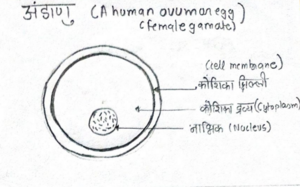 अंडाणु (A human ovum an egg)
(female gamate)
(cell membrane)
कोशिका झिल्ली
कोशिका द्रव्य (Cytoplasm)
नाभिक (Nucleus)